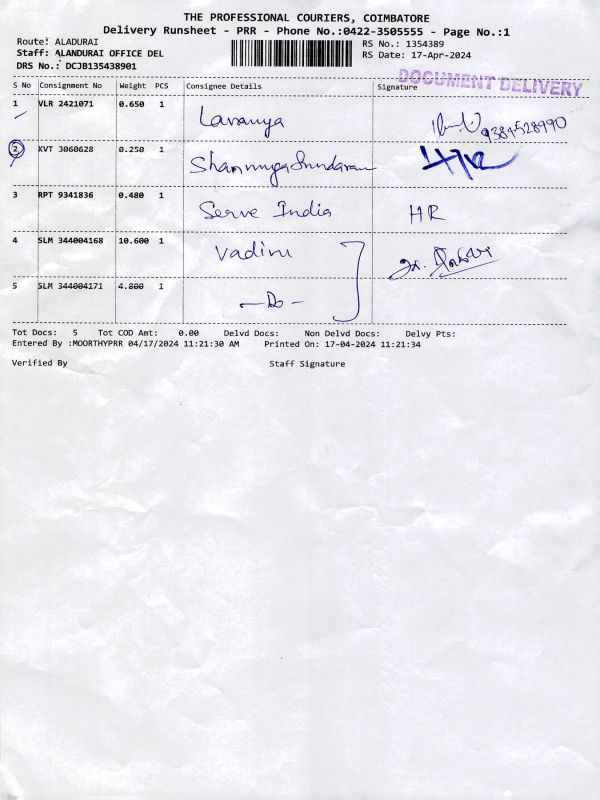 THE PROFESSIONAL COURIERS, COIMBATORE
Delivery Runsheet - PRR - Phone No.:0422-3505555 - Page No.:1
Route: ALADURAI RS No.: 1354389
Staff: ALANDURAI OFFICE DEL RS Date: 17-Apr-2024
DRS No.: DCJB135438901
DOCUMENT DELIVERY
S No Consignment No Weight PCS Consignee Details Signature
1 VLR 2421071 0.650 1 Lavanya 9384528990
2 KVT 3060628 0.250 1 Shanmuga Sundaram
3 RPT 9341836 0.480 1 Serve India HR
4 SLM 344004168 10.600 1 Vadivu
5 SLM 344004171 4.800 1 - Do -
Tot Docs: 5 Tot COD Amt: 0.00 Delvd Docs: Non Delvd Docs: Delvy Pts:
Entered By :MOORTHYPRR 04/17/2024 11:21:30 AM Printed On: 17-04-2024 11:21:34
Verified By Staff Signature